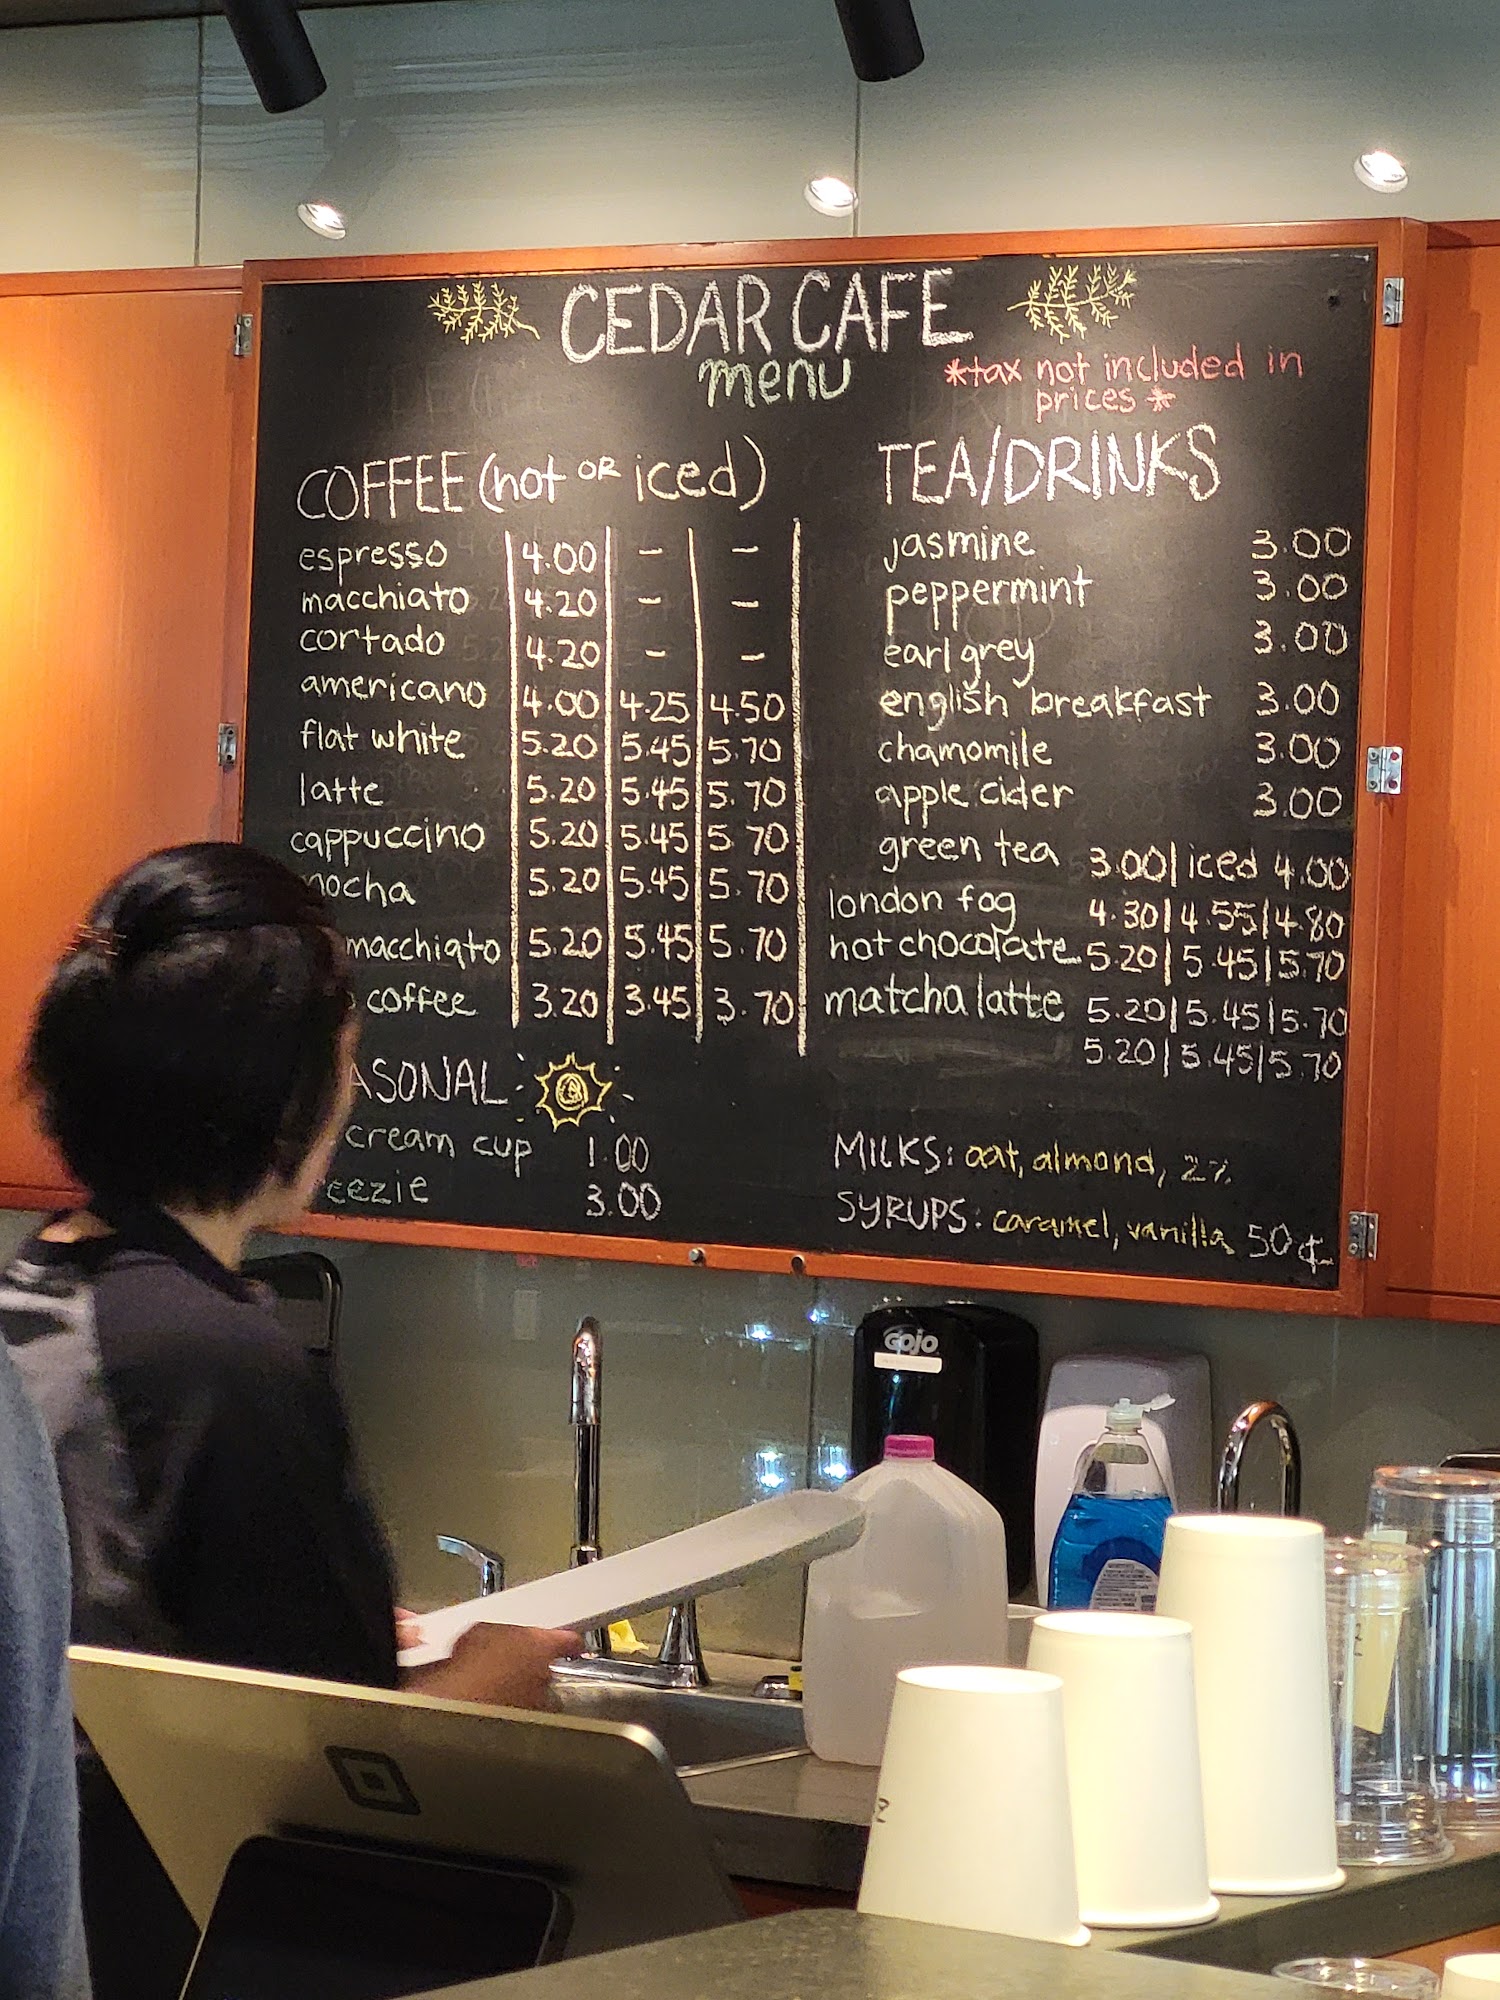 CEDAR CAFE
menu
*tax not included in
prices*
COFFEE (hot OR iced)
espresso 4.00 - -
macchiato 4.20 - -
cortado 4.20 - -
americano 4.00 4.25 4.50
flat white 5.20 5.45 5.70
latte 5.20 5.45 5.70
cappuccino 5.20 5.45 5.70
mocha 5.20 5.45 5.70
macchiato 5.20 5.45 5.70
coffee 3.20 3.45 3.70
cream cup 1.00
3.00
TEA/DRINKS
jasmine 3.00
peppermint 3.00
earl grey 3.00
english breakfast 3.00
chamomile 3.00
apple cider 3.00
green tea 3.00 | iced 4.00
london fog 4.30 | 4.55 | 4.80
hot chocolate 5.20 | 5.45 | 5.70
matcha latte 5.20 | 5.45 | 5.70
5.20 | 5.45 | 5.70
MILKS: oat, almond, 2%
SYRUPS: caramel, vanilla 50¢
GOJO